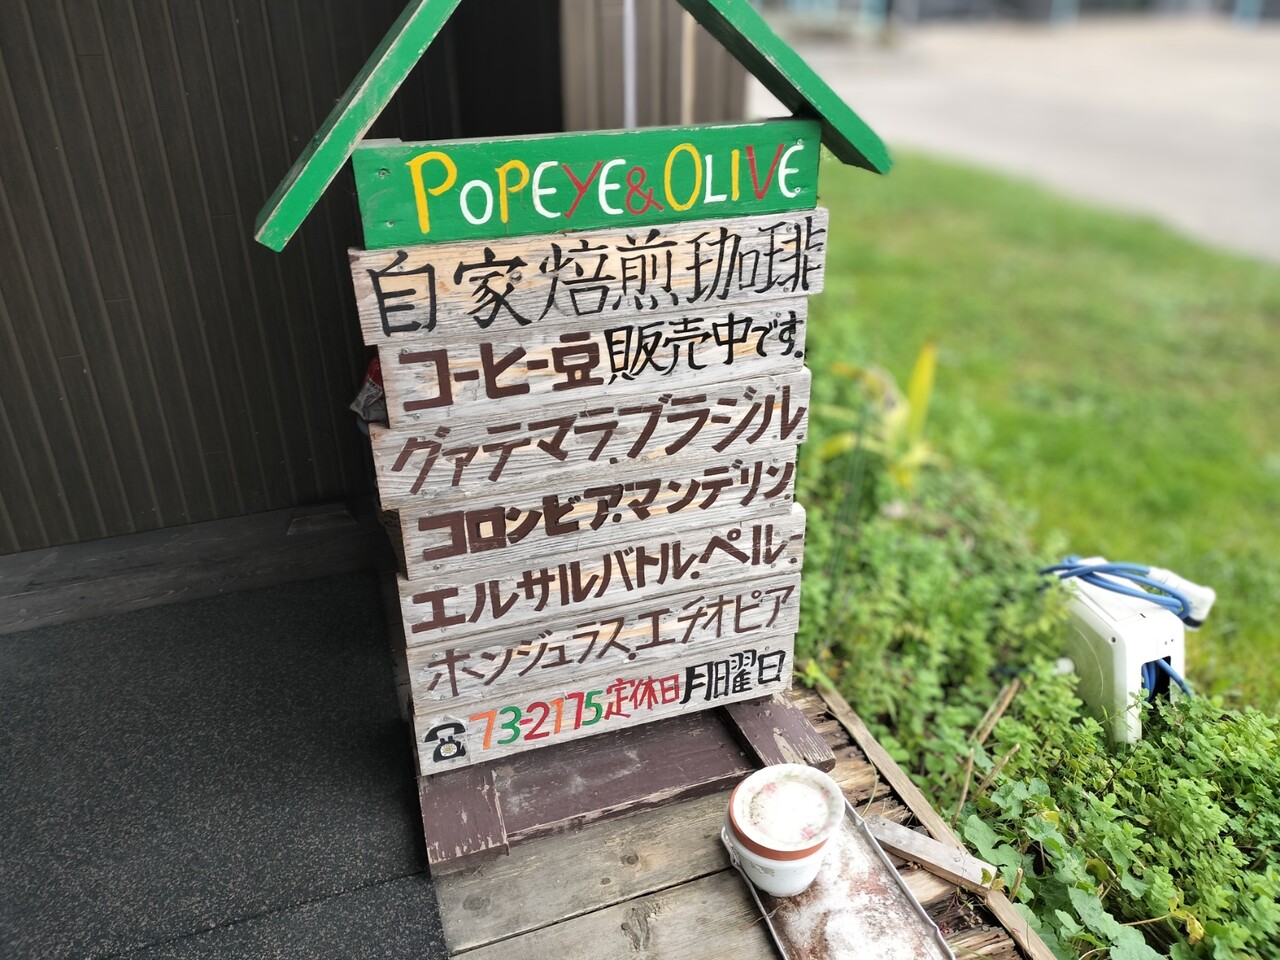 POPEYE & OLIVE
自家焙煎珈琲
コーヒー豆販売中です。
グァテマラ.ブラジル
コロンビア.マンデリン
エルサルバトル.ペルー
ホンジュラス.エチオピア
☎73-2175定休日月曜日